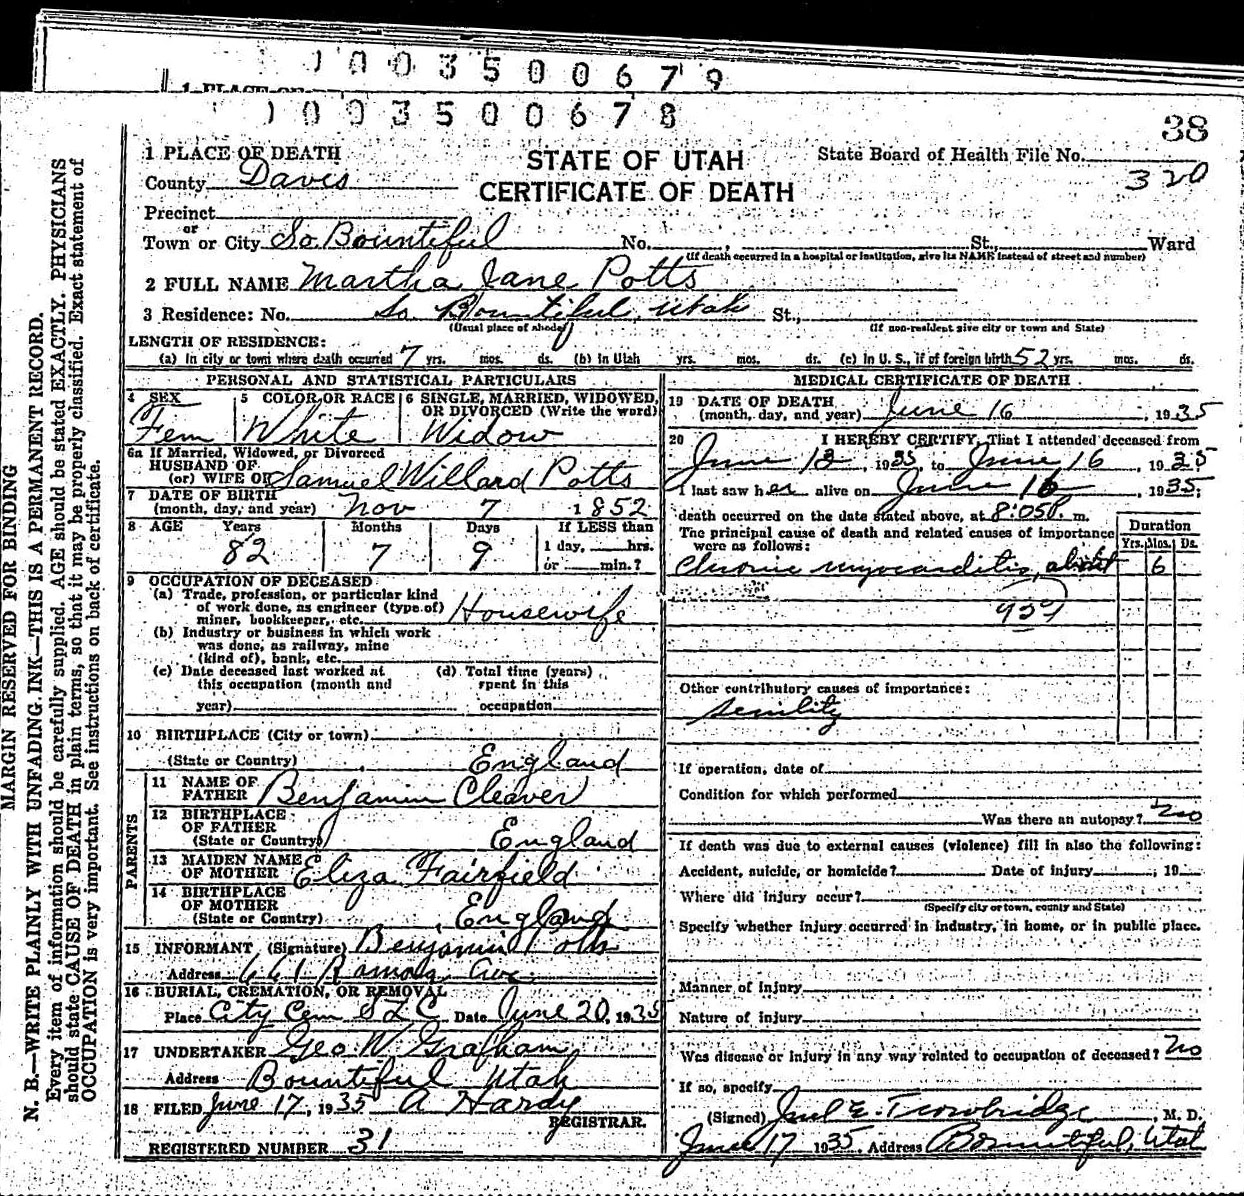 1003500679
1 PLACE OF
1003500678
38
1 PLACE OF DEATH
STATE OF UTAH
CERTIFICATE OF DEATH
State Board of Health File No.
320
County Davis
Precinct
or
Town or City So. Bountiful No. St., Ward
(If death occurred in a hospital or institution, give its NAME instead of street and number)
2 FULL NAME Martha Jane Potts
3 Residence: No. So Bountiful, Utah St.,
(Usual place of abode) (If non-resident give city or town and State)
LENGTH OF RESIDENCE:
(a) In city or town where death occurred 7 yrs. mos. ds. (b) In Utah yrs. mos. ds. (c) In U. S., if of foreign birth 52 yrs. mos. ds.
PERSONAL AND STATISTICAL PARTICULARS
4 SEX 5 COLOR OR RACE 6 SINGLE, MARRIED, WIDOWED, OR DIVORCED (Write the word)
Fem White Widow
6a If Married, Widowed, or Divorced
HUSBAND OF
(or) WIFE OF Samuel Willard Potts
7 DATE OF BIRTH
(month, day, and year) Nov 7 1852
8 AGE Years Months Days If LESS than
82 7 9 1 day, hrs.
or min.?
9 OCCUPATION OF DECEASED
(a) Trade, profession, or particular kind
of work done, as engineer (type of)
miner, bookkeeper, etc. Housewife
(b) Industry or business in which work
was done, as railway, mine
(kind of), bank, etc.
(c) Date deceased last worked at (d) Total time (years)
this occupation (month and spent in this
year) occupation
10 BIRTHPLACE (City or town)
(State or Country) England
PARENTS
11 NAME OF
FATHER Benjamin Cleaver
12 BIRTHPLACE
OF FATHER
(State or Country) England
13 MAIDEN NAME
OF MOTHER Eliza Fairfield
14 BIRTHPLACE
OF MOTHER
(State or Country) England
15 INFORMANT (Signature) Benjamin Potts
Address 661 Ramona Ave
16 BURIAL, CREMATION, OR REMOVAL
Place City Cem S L C Date June 20, 1935
17 UNDERTAKER Geo W. Grafham
Address Bountiful Utah
18 FILED June 17, 1935 A Hardy
REGISTRAR.
REGISTERED NUMBER 31
MEDICAL CERTIFICATE OF DEATH
19 DATE OF DEATH
(month, day, and year) June 16, 1935
20 I HEREBY CERTIFY, That I attended deceased from
June 13, 1935, to June 16, 1935
I last saw her alive on June 16, 1935;
death occurred on the date stated above, at 8:05 P. m.
The principal cause of death and related causes of importance
were as follows:
Duration
Yrs. Mos. Ds.
Chronic myocarditis, 6
Other contributory causes of importance:
Senility
If operation, date of
Condition for which performed
Was there an autopsy? No
If death was due to external causes (violence) fill in also the following:
Accident, suicide, or homicide? Date of injury , 19
Where did injury occur?
(Specify city or town, county and State)
Specify whether injury occurred in industry, in home, or in public place.
Manner of injury
Nature of injury
Was disease or injury in any way related to occupation of deceased? No
If so, specify
(Signed) E. Trowbridge, M. D.
June 17 1935. Address Bountiful, Utah
MARGIN RESERVED FOR BINDING
N. B.—WRITE PLAINLY WITH UNFADING INK—THIS IS A PERMANENT RECORD.
Every item of information should be carefully supplied. AGE should be stated EXACTLY. PHYSICIANS
should state CAUSE OF DEATH in plain terms, so that it may be properly classified. Exact statement of
OCCUPATION is very important. See instructions on back of certificate.